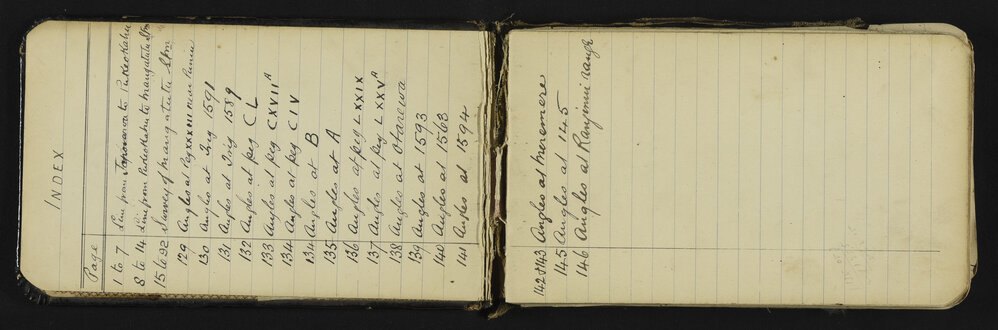 INDEX
Page
1 to 7 Line from Taporaroa to Pukeokahu
8 to 14 Line from Pukeokahu to Mangatutu Stm
15 to 32 Survey of Mangatutu Stm
129 Angles at Peg XXXIII near Puniu
130 Angles at Trig 1591
131 Angles at Trig 1559
132 Angles at peg CL
133 Angles at peg CXVII A
134 Angles at peg CIV
134 Angles at B
135 Angles at A
136 Angles at peg LXXIX
137 Angles at peg LXXV A
138 Angles at Otarewa
139 Angles at 1593
140 Angles at 1563
141 Angles at 1594
142 & 143 Angles at Meremere
145 Angles at 145
146 Angles at range